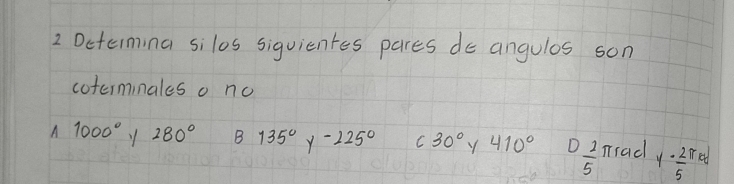 2 Determina si los siguientes pares de angulos son
coterminales o no
A 1000° y 280° B 135° y -225° C 30° y 410° D 2/5 π rad y -2π/5 rad